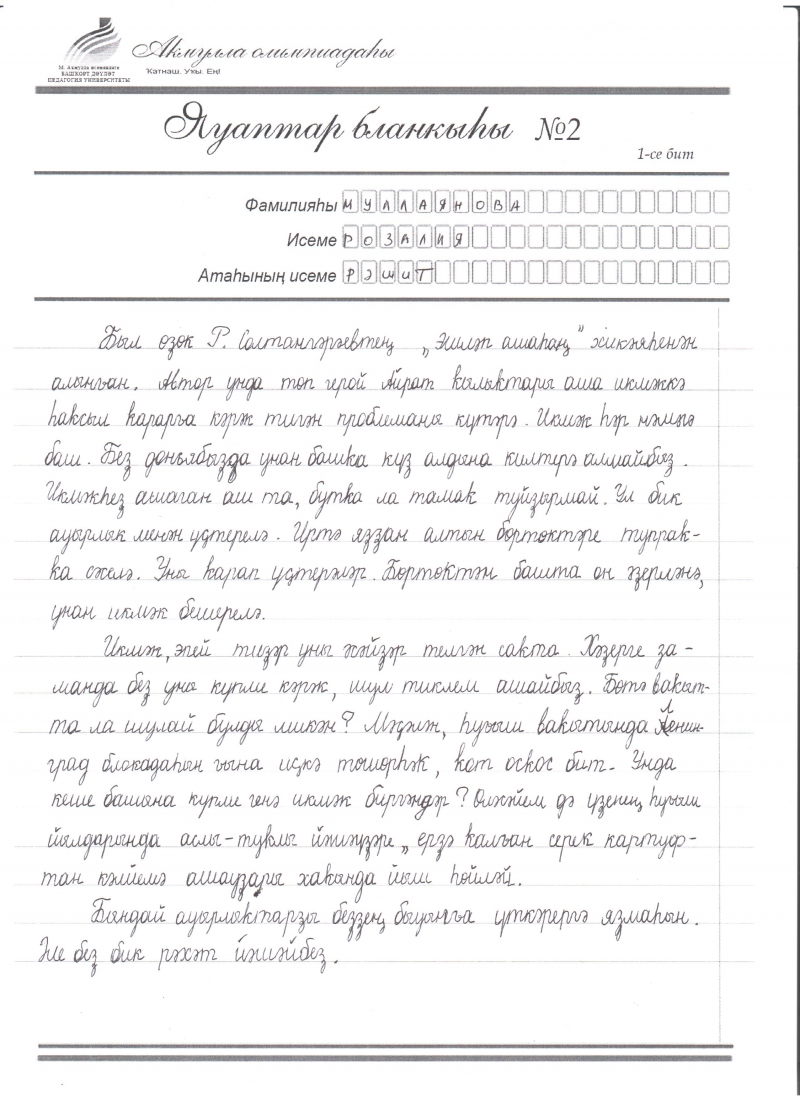 М. Акмулла исемендәге
БАШҠОРТ ДӘҮЛӘТ
ПЕДАГОГИЯ УНИВЕРСИТЕТЫ
Акмулла олимпиадаһы
Ҡатнаш. Уҡы. Ең!
Яуаптар бланкыһы №2
1-се бит
Фамилияһы МУЛЛАЯНОВА
Исеме РОЗАЛИЯ
Атаһының исеме РӘШИТ
Был өзөк Р. Солтангәрәевтең „Эшләп ашаһаң" хикәйәһенән
алынған. Автор унда төп герой Айрат кылыктары аша икмәккә
һаксыл карарға кәрәк тигән проблеманы күтәрә. Икмәк һәр нәмәгә
баш. Без донъябызда унан башка күз алдына килтерә алмайбыз.
Икмәкһез ашаған аш та, бутка ла тамак туйзырмай. Ул бик
ауырлык менән үҫтерелә. Иртә яззан алтын бөртөктәре тупрак-
ка сәселә. Уны карап үҫтерәләр. Бөртөктән башта он әзерләнә,
унан икмәк бешерелә.
Икмәк, әпей тизәр уны кәйзәр телгән сакта. Хәзерге за-
манда без уны күпме кәрәк, шул тиклем ашайбыз. Бөтә вакыт-
та ла шулай булды микән? Мәҫәлән, һуғыш вакытында Ленин-
град блокадаһын ғына иҫкә төшөрһәк, кот оскос бит. Унда
кеше башына күпме генә икмәк биргәндәр? Өләсәйем дә үзенең һуғыш
йылдарында аслы-туклы йәшәүзәре, ерзә калған серек картуф-
тан кәлйемә ашаузары хакында йыш һөйләй.
Бындай ауырлыктарзы беззең быуынға үткәрергә язмаһын.
Ә без бик рәхәт йәшәйбез.